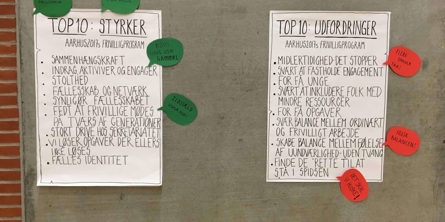 TOP 10: STYRKER
AARHUS 2017s FRIVILLIGPROGRAM
SAMMENHÆNGSKRAFT
INDRAG AKTIVERER OG ENGAGER
STOLTHED
FÆLLESSKAB OG NETVÆRK
SYNLIGGØR FÆLLESSKABET
FEDT AT FRIVILLIGE MØDES
PÅ TVÆRS AF GENERATIONER
STORT DRIVE HOS SEKRETARIATET
VI LØSER OPGAVER DER ELLERS
IKKE LØSES
FÆLLES IDENTITET
TOP 10: UDFORDRINGER
AARHUS 2017s FRIVILLIGPROGRAM
MIDLERTIDIGHED DET STOPPER
SVÆRT AT FASTHOLDE ENGAGEMENT
FOR FÅ UNGE
SVÆRT AT INKLUDERE FOLK MED
MINDRE RESSOURCER
FOR FÅ OPGAVER
SVÆR BALANCE MELLEM ORDINÆRT
OG FRIVILLIGT ARBEJDE
SKABE BALANCE MELLEM FØLELSE
AF UUNDVÆRLIGHED UDEN TVANG
FINDE DE RETTE TIL AT
STÅ I SPIDSEN